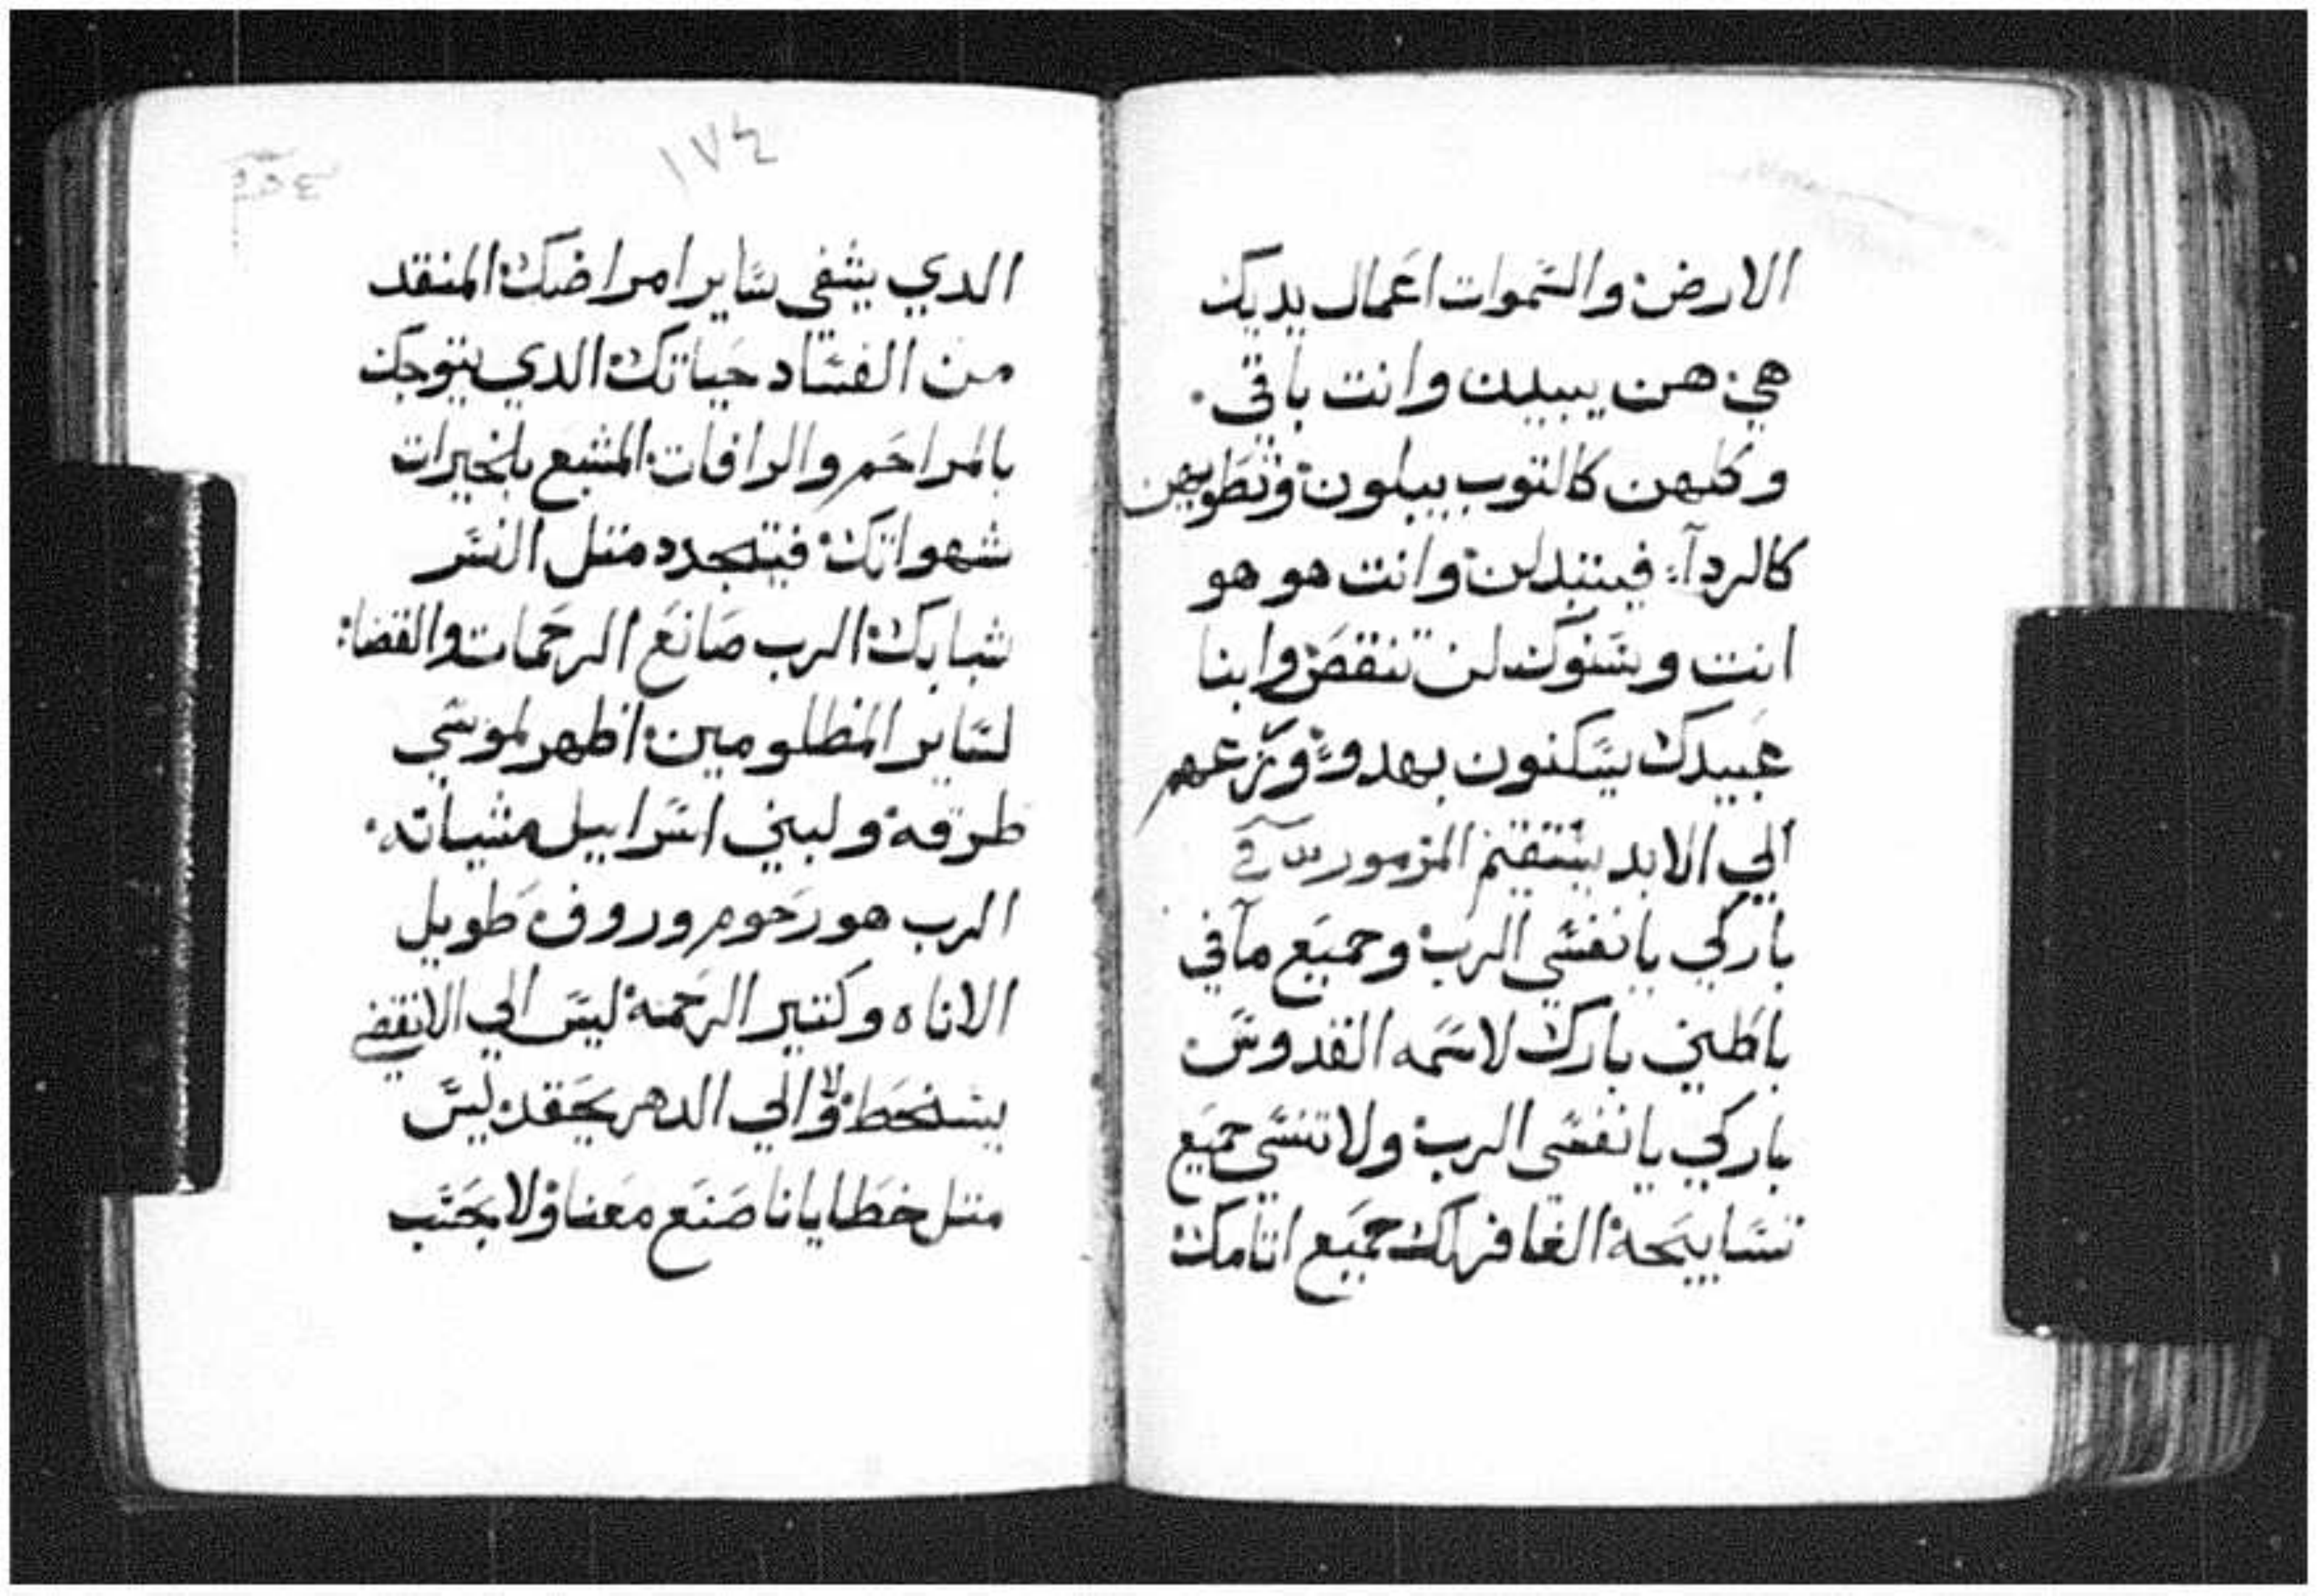 الارض والسموات اعمال يديك
هي هن يبيلين وانت باقي.
وكلهن كالتوب يبيلون وتطويهن
كالردآ: فيتبدلن وانت هو هو
انت وسنوك لن تنقص وابنا
عبيدك يسكنون بهدو وزرعهم
الي الابد يستقيم المزمور
باركي يا نفسي الرب وجميع مآفي
باطني بارك لاسمه القدوس
باركي يا نفسي الرب ولا تنسي جميع
تسابيحه الغافر لك جميع اتامك
١٧٤
الدي يشفي ساير امراضك المنقد
من الفساد حياتك الدي يتوجك
بالمراحم والرافات المشبع بلخيرات
شهواتك فيتجدد متل النسر
شبابك الرب صانع الرحمات والقضا:
لساير المظلومين اظهر لموسي
طرقه ولبني اسراييل مشياته.
الرب هو رحوم وروف طويل
الاناه وكتير الرحمه ليس الي الانقضي
يسخط ولا الي الدهر يحقد ليس
متل خطايانا صنع معنا ولا بحسب